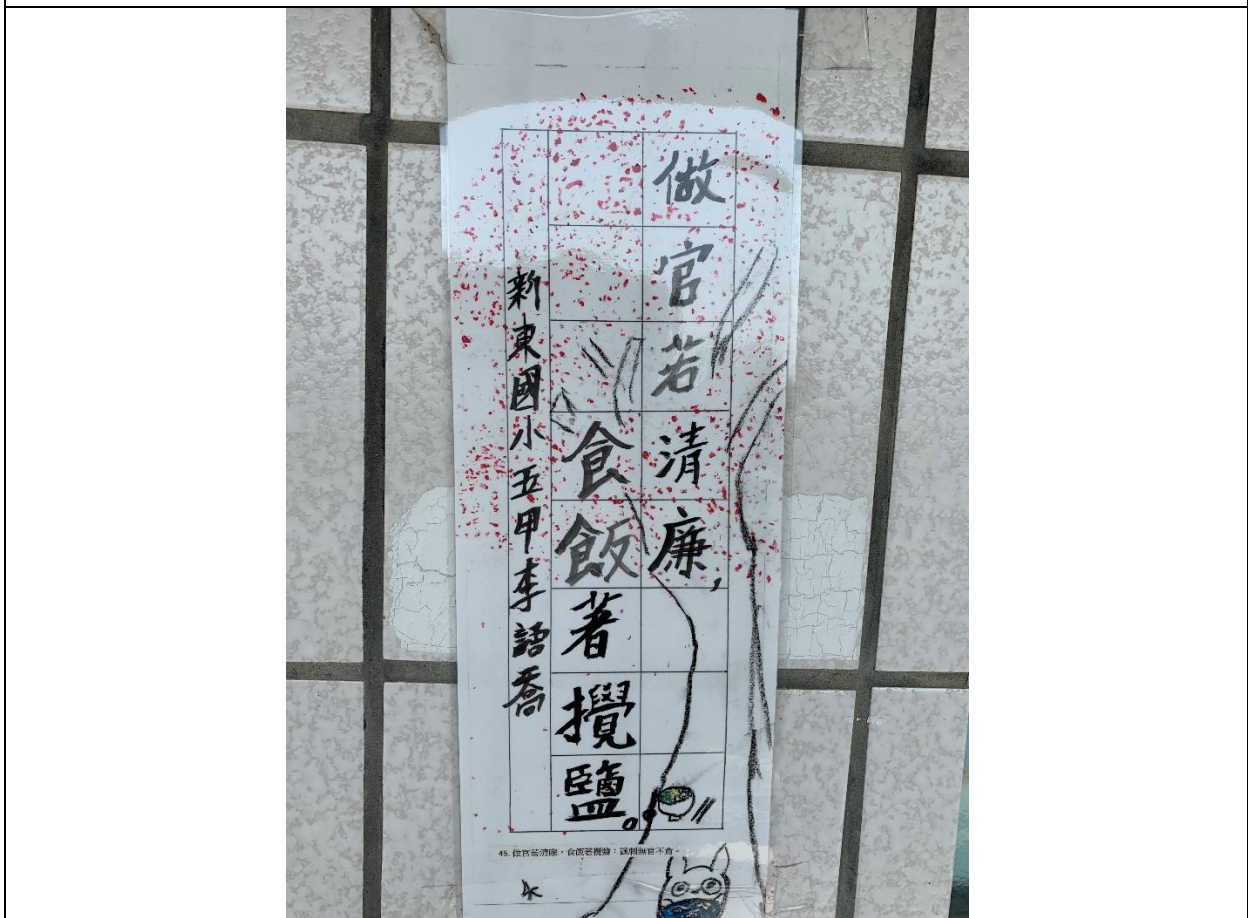 做官若清廉，
食飯著攪鹽。
新東國小五甲李語喬
45. 做官若清廉，食飯著攪鹽：諷刺無官不貪。